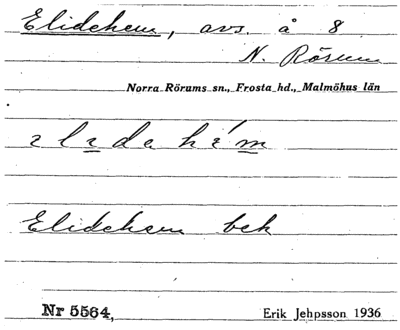 Elidehem, avs. å 8
N. Rörum
Norra Rörums sn., Frosta hd., Malmöhus län
Elidehem bek
Nr 5564,
Erik Jehpsson 1936